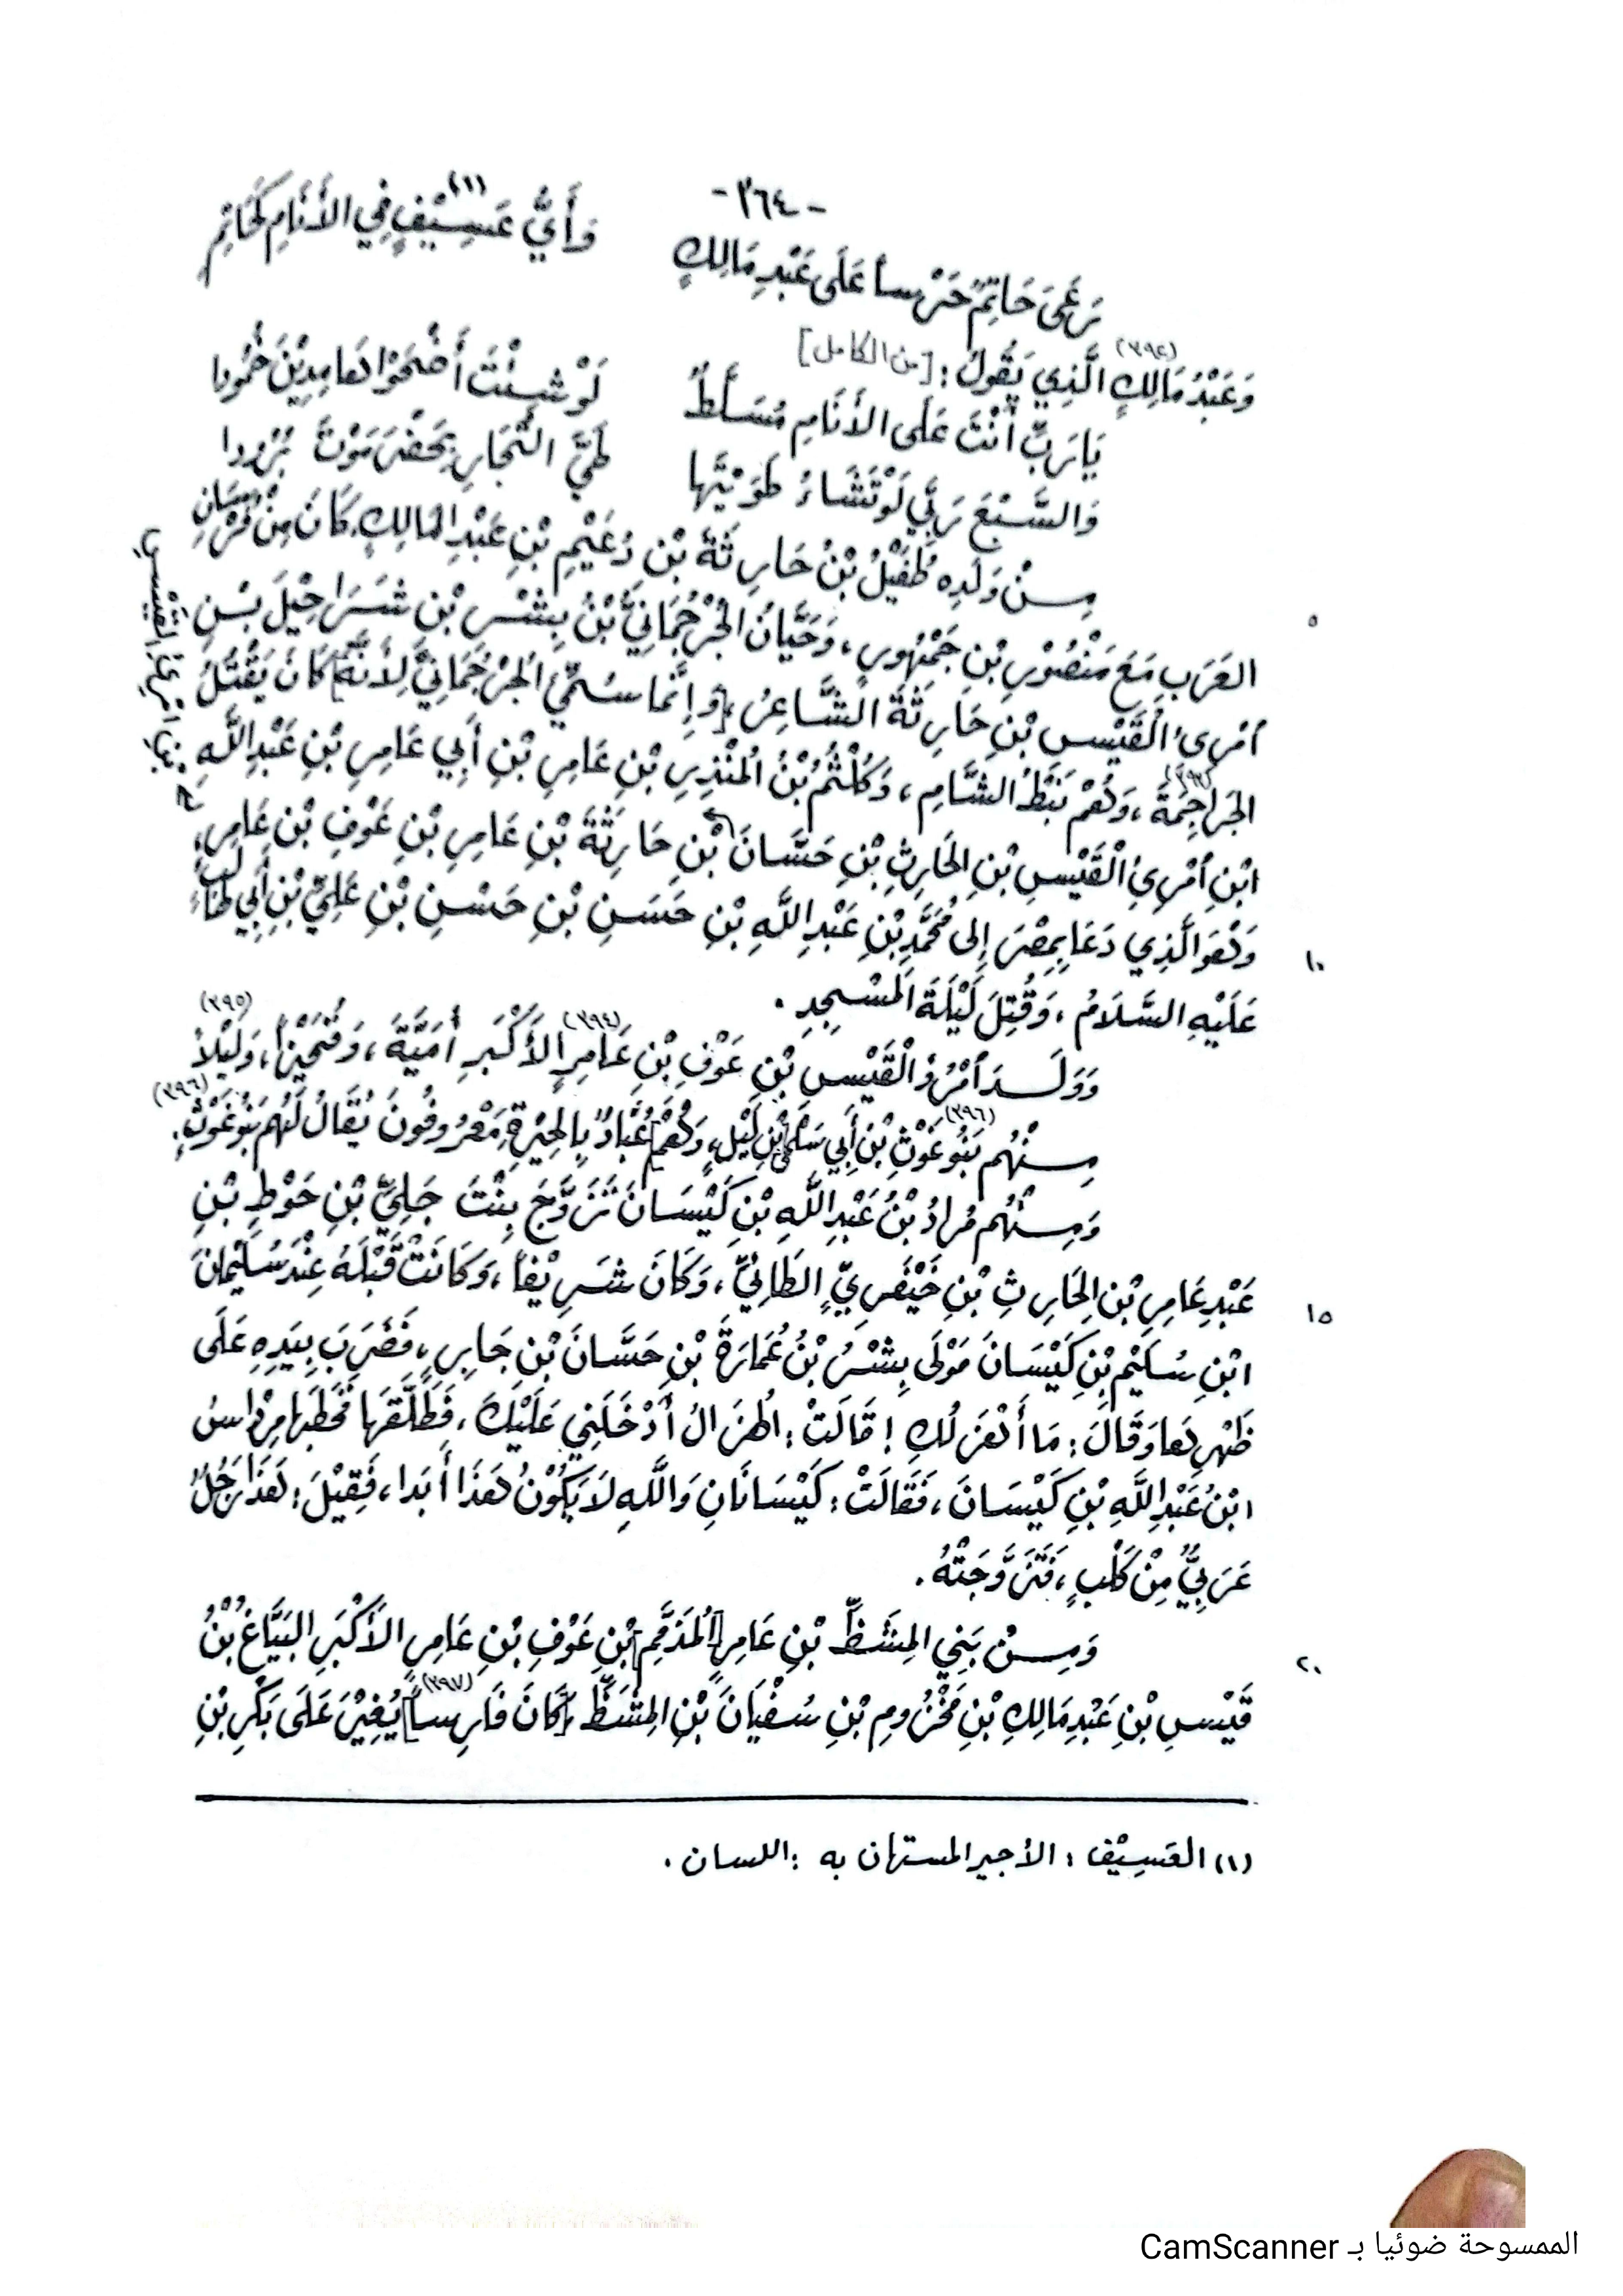 -٣٦٤-
رَعَى حَاتِمٌ حَرْساً عَلَى عَبْدِ مَالِكٍ وَأَيُّ عَسِيْفٍ فِي الأَنَامِ كَحَاتِمِ (١)
وَعَبْدُ مَالِكٍ (٣٩٢) الَّذِي يَقُولُ: [من الكامل]
يَا رَبِّ أَنْتَ عَلَى الأَنَامِ مُسَلَّطٌ لَوْ شِئْتَ أَضْحَوْا هَامِدِيْنَ خُمُودا
وَالسَّبْعَ رَبِّي لَوْ تَشَاءُ طَوَيْتَها طَيَّ التِّجَارِ بِحَضْرَمَوْتَ بُرُودا
مِنْ وَلَدِهِ طُفَيْلُ بْنُ حَارِثَةَ بْنِ دُعَيْمِ بْنِ عَبْدِ المَالِكِ، كَانَ مِنْ فُرْسَانِ
٥
العَرَبِ مَعَ مَنْصُوْرِ بْنِ جَمْهُورٍ، وَحَيَّانُ الجُرْجُمَانِيُّ بْنُ بِشْرِ بْنِ شَرَاحِيْلَ بْنِ
امْرِئ الْقَيْسِ بْنِ حَارِثَةَ الشَّاعِرُ، [وَإِنَّمَا سُمِّيَ الجُرْجُمَانِيَّ لِأَنَّهُ] كَانَ يَقْتُلُ
الجَرَاجِمَةَ (٣٩٣)، وَهُمْ نَبَطُ الشَّامِ، وَكُلْثُمُ بْنُ المُنْذِرِ بْنِ عَامِرِ بْنِ أَبِي عَامِرِ بْنِ عَبْدِ اللَّهِ
ابْنِ امْرِئ الْقَيْسِ بْنِ الحَارِثِ بْنِ حَسَّانَ بْنِ حَارِثَةَ بْنِ عَامِرِ بْنِ عَوْفِ بْنِ عَامِرٍ،
وَهُوَ الَّذِي دَعَا بِمِصْرَ إِلَى مُحَمَّدِ بْنِ عَبْدِ اللَّهِ بْنِ حَسَنِ بْنِ حَسَنِ بْنِ عَلِيِّ بْنِ أَبِي طَالِبٍ
١٠
عَلَيْهِ السَّلَامُ، وَقُتِلَ لَيْلَةَ المَسْجِدِ.
وَوَلَدَ امْرُؤُ الْقَيْسِ بْنِ عَوْفِ بْنِ عَامِرٍ (٣٩٤) الأَكْبَرِ أُمَيَّةَ، وَ وَلَيْلاً (٣٩٥)
مِنْهُم بَنُو غَوْثِ (٣٩٦) بْنِ أَبِي سَلْمَى بْنِ لَيْلٍ، وَهُمْ [عُبَّادٌ بِالحِيْرَةِ] مَعْرُوفُونَ يُقَالُ لَهُم بَنُو غَوْثٍ (٣٩٦).
وَمِنْهُم مُرَادُ بْنُ عَبْدِ اللَّهِ بْنِ كَيْسَانَ تَزَوَّجَ بِنْتَ جَلِيِّ بْنِ حَوْطِ بْنِ
عَبْدِ عَامِرِ بْنِ الحَارِثِ بْنِ خَيْبَرِيٍّ الطَّائِيِّ، وَكَانَ شَرِيْفاً، وَكَانَتْ قَبْلَهُ عِنْدَ سُلَيْمَانَ
١٥
ابْنِ سُلَيْمِ بْنِ كَيْسَانَ مَوْلَى بِشْرِ بْنِ عُمَارَةَ بْنِ حَسَّانَ بْنِ جَابِرٍ، فَضَرَبَ بِيَدِهِ عَلَى
ظَهْرِهَا وَقَالَ: مَا أَهْزَلُكِ! قَالَتْ: الهُزَالُ أَدْخَلَنِي عَلَيْكَ، فَطَلَّقَهَا فَخَطَبَهَا مِرْدَاسُ
ابْنُ عَبْدِ اللَّهِ بْنِ كَيْسَانَ، فَقَالَتْ: كَيْسَانَانِ وَاللَّهِ لَا يَكُوْنُ هَذَا أَبَدا، فَقِيْلَ: هَذَا رَجُلٌ
عَرَبِيٌّ مِنْ كَلْبٍ، فَتَزَوَّجَتْهُ.
وَمِنْ بَنِي المِشَظِّ بْنِ عَامِرٍ [المُذَمَّمِ] بْنِ عَوْفِ بْنِ عَامِرِ الأَكْبَرِ البَيَّاعُ بْنُ
٢٠
قَيْسِ بْنِ عَبْدِ مَالِكِ بْنِ مَخْزُومِ بْنِ سُفْيَانَ بْنِ المِشَظِّ، [كَانَ فَارِساً] (٣٩٧) يُغِيْرُ عَلَى بَكْرِ بْنِ
(١) العَسِيْف: الأجير المستهان به: اللسان.
الممسوحة ضوئيا بـ CamScanner